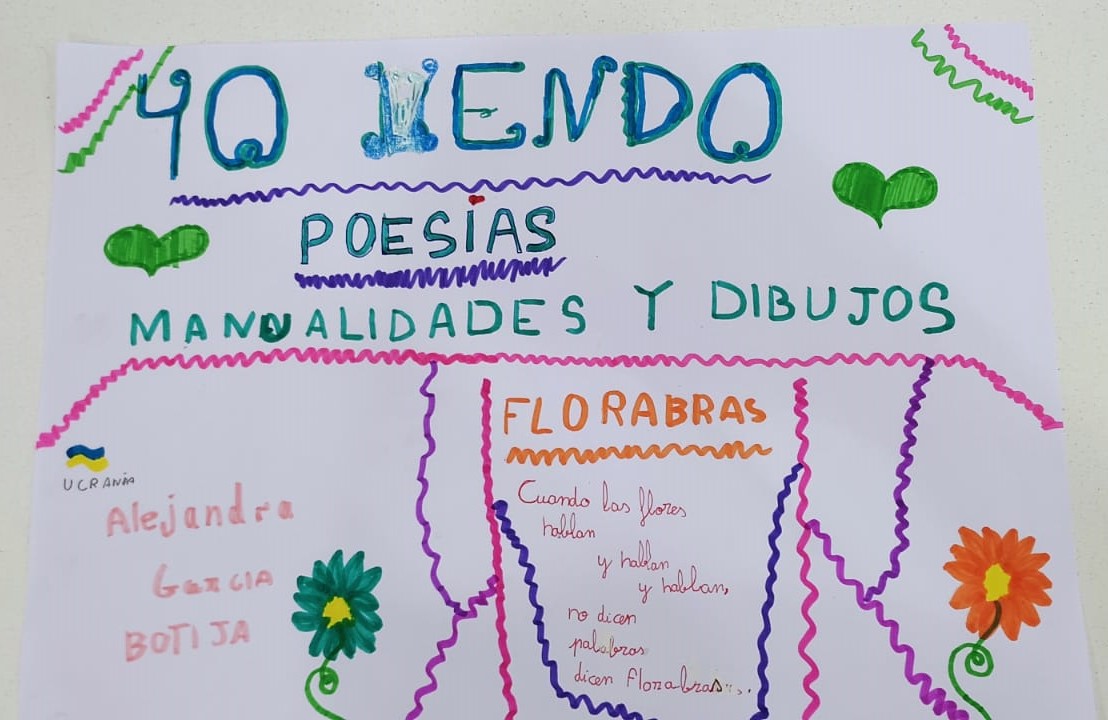 YO VENDO
POESÍAS
MANUALIDADES Y DIBUJOS
FLORABRAS
UCRANIA
Alejandra
García
BOTIJA
Cuando las flores
hablan
y hablan
y hablan,
no dicen
palabras
dicen florabras...